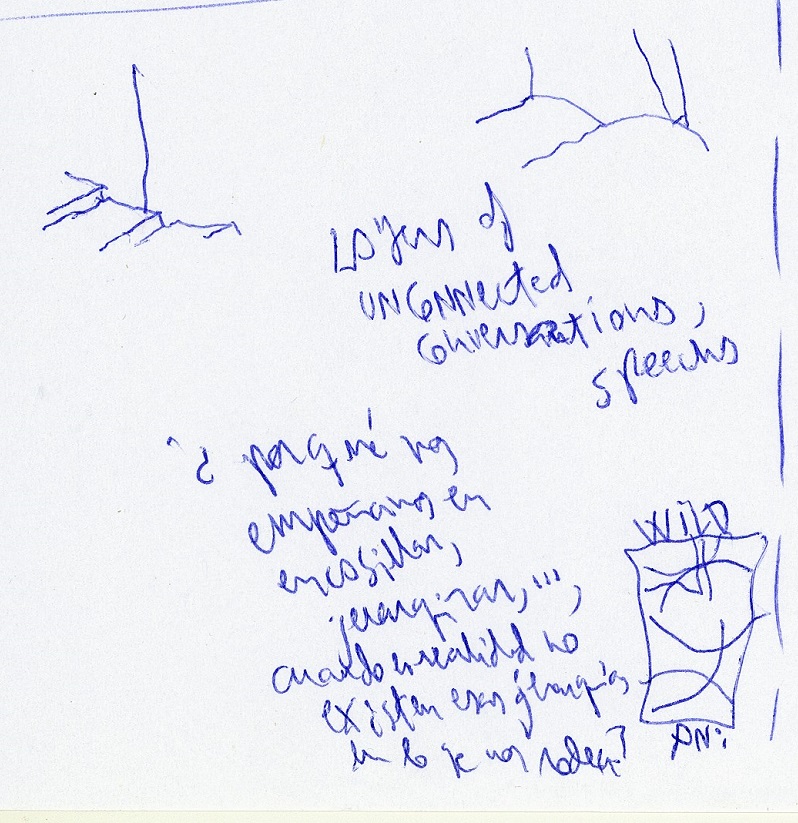 Layers of
UNCONNected
Conversations,
speechs
¿ porqué nos
empeñamos en
encasillar,
jerarquizar, ''',
cuando en realidad no
existen esas jerarquías
en lo que nos rodea?
WilD